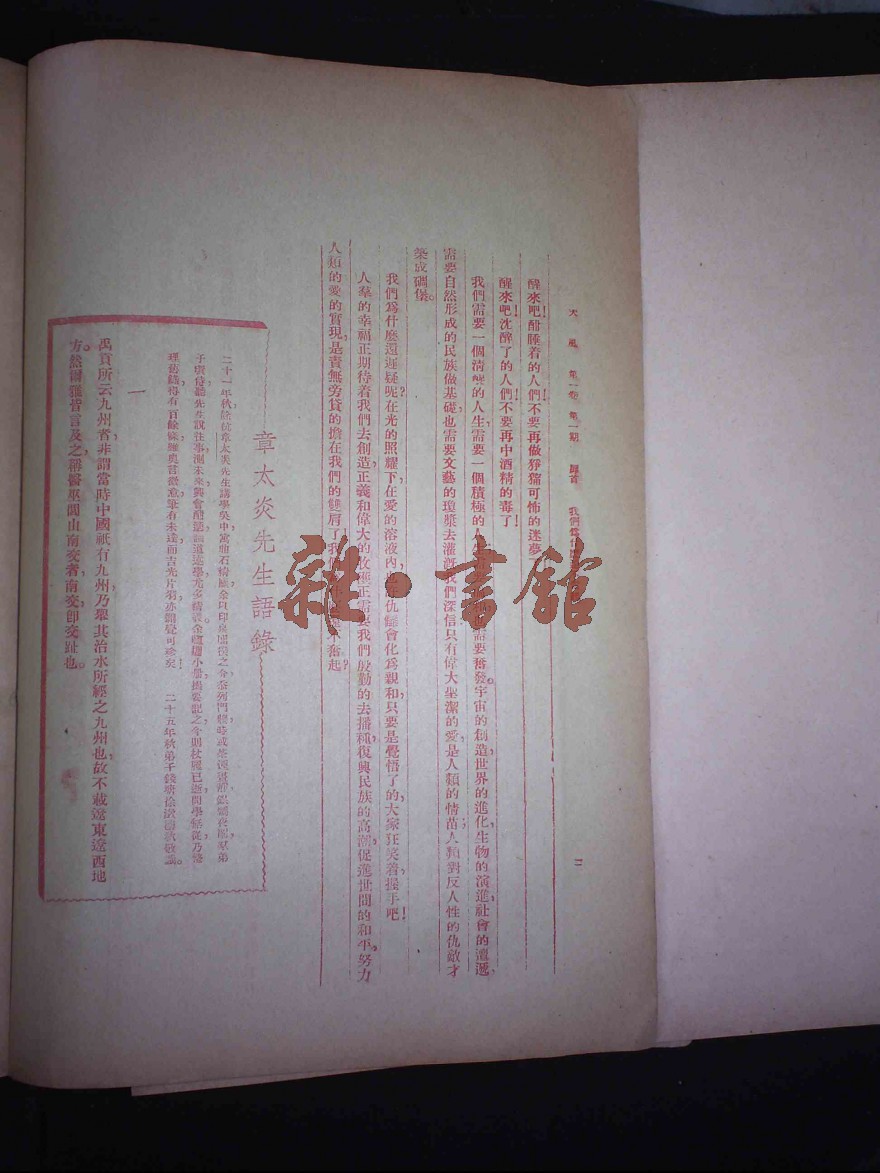 大風 第一卷 第一期 歸首 我們
二
醒來吧!酣睡着的人們!不要再做猙獰可怖的迷夢
醒來吧!沈醉了的人們!不要再中酒精的毒了!
我們需要一個清醒的人生,需要一個積極的人 需要奮發。宇宙的創造,世界的進化,生物的演進,社會的遞,
需要自然形成的民族做基礎,也需要文藝的瓊漿去灌溉,我們深信只有偉大聖潔的愛,是人類的情苗;人類對反人性的仇敵才
築成碉堡。
我們為什麼還遲疑呢?在光的照耀下,在愛的溶液內, 仇讎會化為親和,只要是覺悟了的,大家狂笑着握手吧!
人羣的幸福正期待着我們去創造,正義和偉大的收穫正需要我們殷勤的去播種,復興民族的高潮,促進世間的和平,努力
人類的愛的實現,是責無旁貸的擔在我們的雙肩了!我 奮起?
章太炎先生語錄
二十一年秋,餘杭章太炎先生講學吳中,余以印 之令參列門牆,時或茶 夜 羣弟
子環侍,聽先生說往事,測未來,興會酣 論道述學,尤多精 余 小冊,揭要記之,今則杖履已逝,問學無從,乃
理舊 得百餘條,雖奧旨微意,筆有未達,而吉光片羽,亦彌覺可珍矣! 二十五年秋弟子錢塘徐澂 敬
一
禹貢所云九州者,非謂當時中國祇有九州,乃舉其治水所經之九州也,故不載遼東遼西地
方。然爾雅皆言及之,稱醫巫閭山。南交者,南交即交趾也。
雜·書館